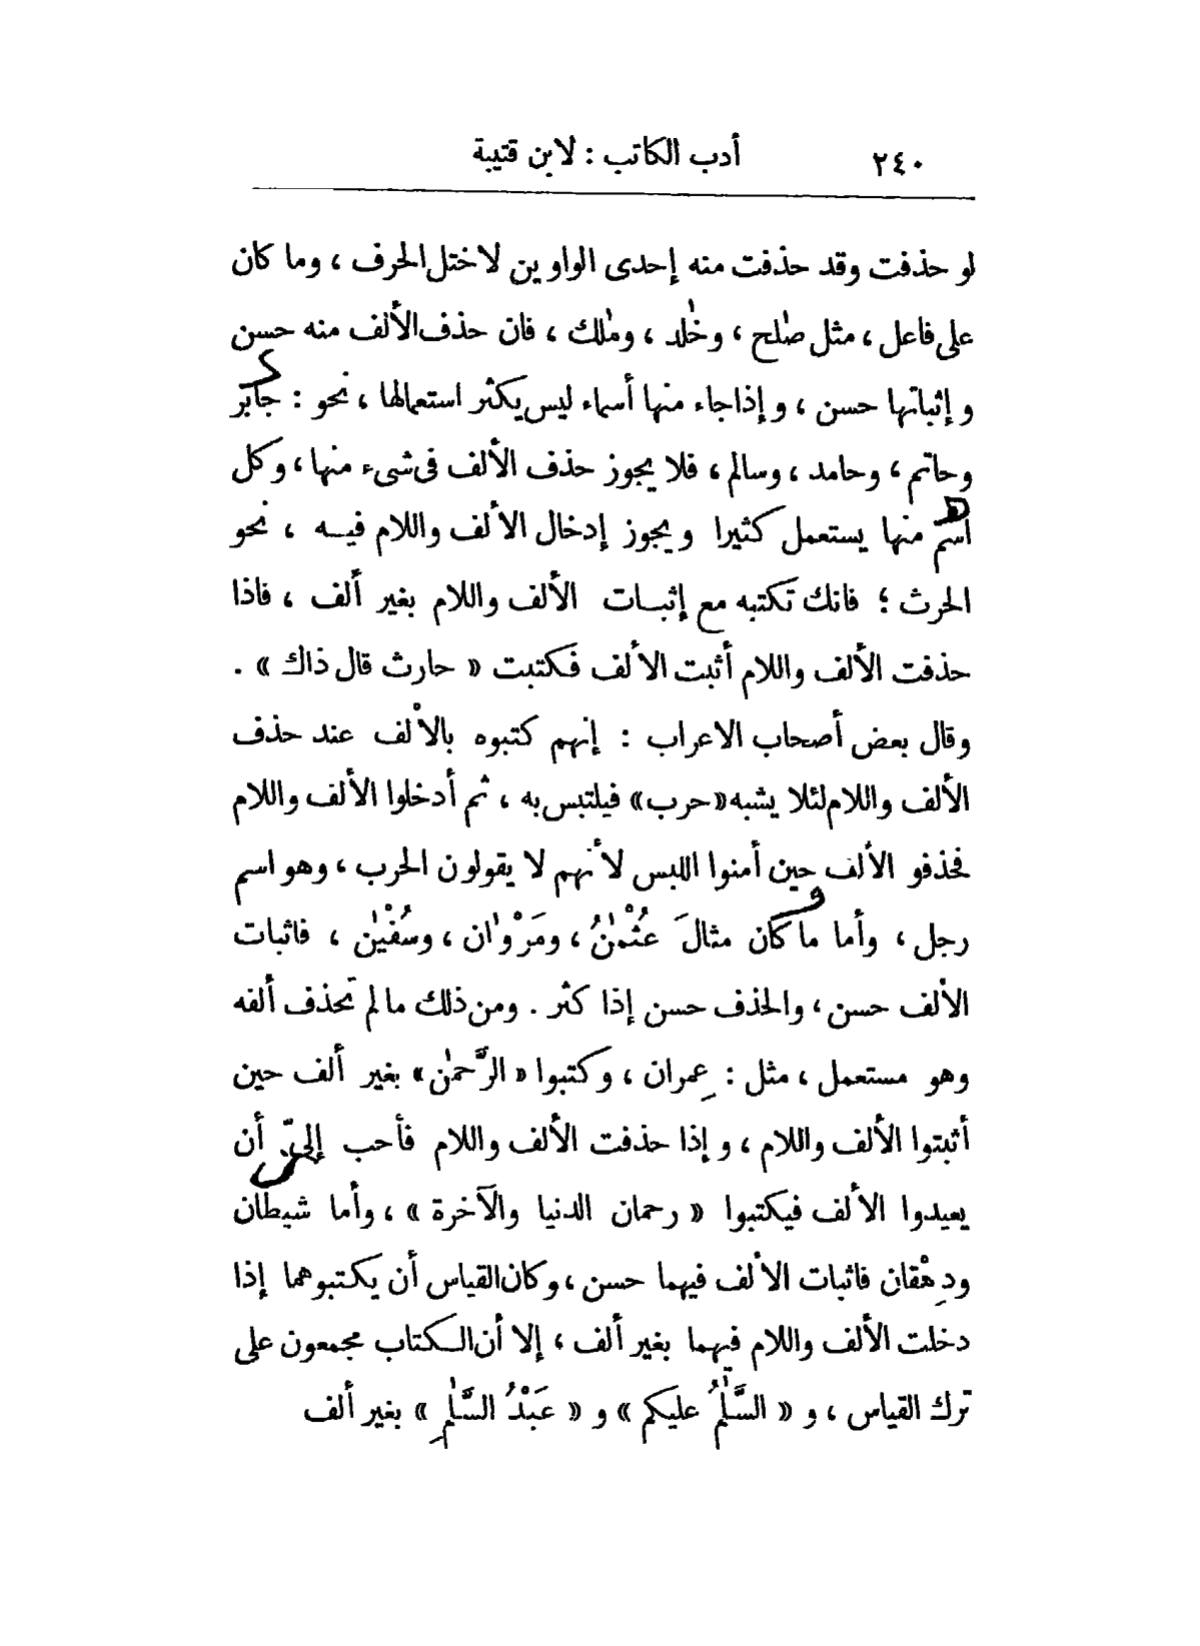 ٢٤٠ أدب الكاتب : لابن قتيبة
لو حذفت وقد حذفت منه إحدى الواوين لاختل الحرف ، وما كان
على فاعل ، مثل صٰلح ، وخٰلد ، ومٰلك ، فان حذف الألف منه حسن
وإثباتها حسن ، وإذا جاء منها أسماء ليس يكثر استعمالها ، نحو : جابر
وحاتم ، وحامد ، وسالم ، فلا يجوز حذف الألف فى شىء منها ، وكل
اسم منها يستعمل كثيرا ويجوز إدخال الألف واللام فيه ، نحو
الحرث ؛ فانك تكتبه مع إثبات الألف واللام بغير ألف ، فاذا
حذفت الألف واللام أثبت الألف فكتبت « حارث قال ذاك » .
وقال بعض أصحاب الاعراب : إنهم كتبوه بالألف عند حذف
الألف واللام لئلا يشبه « حرب » فيلتبس به ، ثم أدخلوا الألف واللام
فحذفو الألف حين أمنوا اللبس لأنهم لا يقولون الحرب ، وهو اسم
رجل ، وأما ما كان مثالَ عُثْمٰنُ ، ومَرْوٰان ، وسُفْيٰن ، فاثبات
الألف حسن ، والحذف حسن إذا كثر . ومن ذلك ما لم تحذف ألفه
وهو مستعمل ، مثل : عِمران ، وكتبوا « الرَّحمٰن » بغير ألف حين
أثبتوا الألف واللام ، وإذا حذفت الألف واللام فأحب إلىّ أن
يعيدوا الألف فيكتبوا « رحمان الدنيا والآخرة » ، وأما شيطان
ودِهْقان فاثبات الألف فيهما حسن ، وكان القياس أن يكتبوهما إذا
دخلت الألف واللام فيهما بغير ألف ، إلا أن الكتاب مجمعون على
ترك القياس ، و « السَّلٰمُ عليكم » و « عَبْدُ السَّلٰمِ » بغير ألف